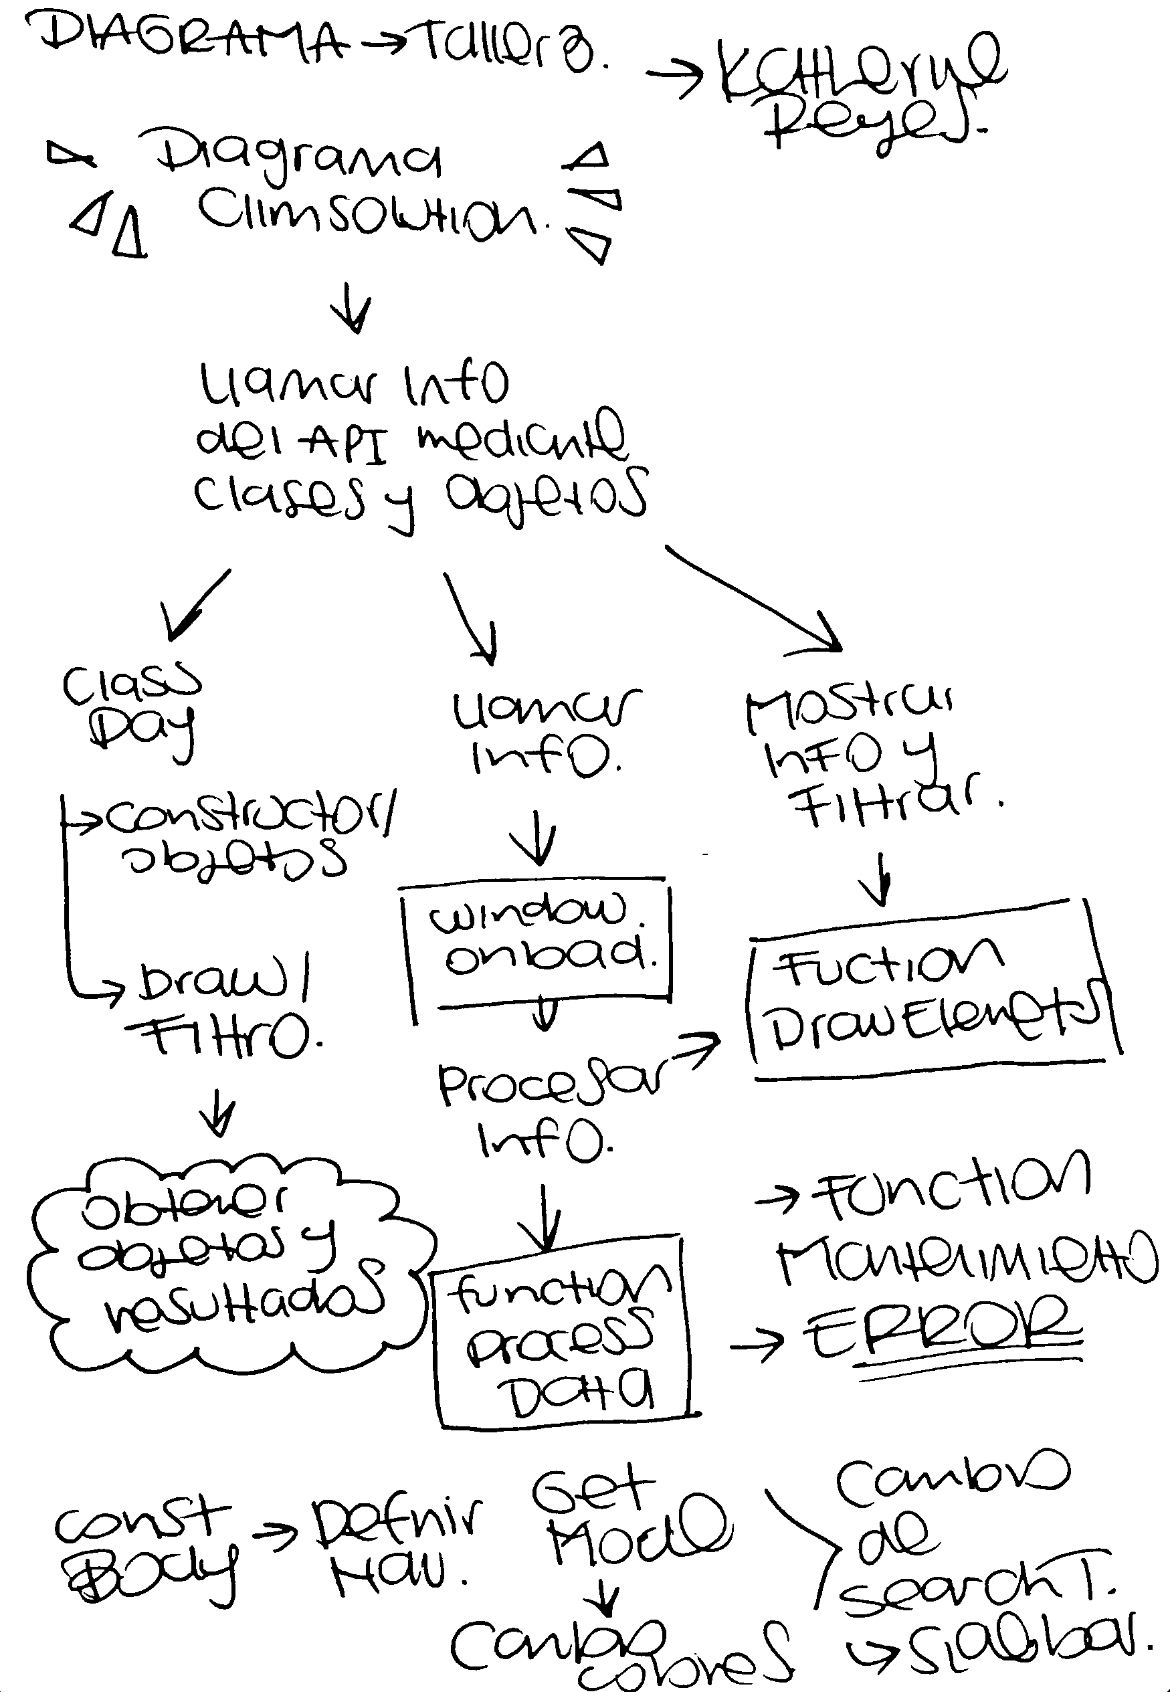 DIAGRAMA → Taller 3.
→ Katheryne
Reyes.
Diagrama
Climsolution.
Llamar Info
del API mediante
clases y objetos
Class
Day
→ constructor/
objetos
→ Draw/
Filtro.
obtener
objetos y
resultados
Llamar
Info.
window.
onload.
Procesar
Info.
function
process
Data
Mostrar
Info y
Filtrar.
Fuction
DrawElenets
→ Function
Mantenimietto
→ ERROR
const
Body
→ Definir
Nav.
Get
Mode
Cambio
colores
Cambio
de
search T.
↳ Sidebar.